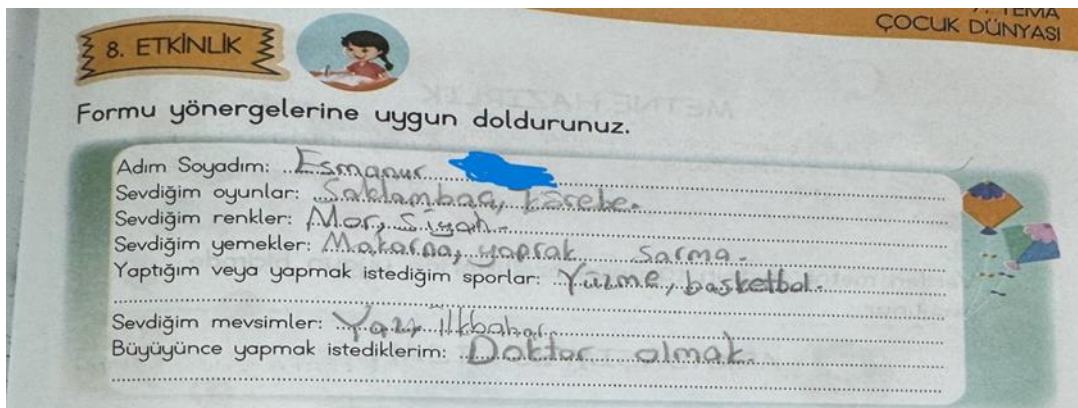 7. TEMA
ÇOCUK DÜNYASI
8. ETKİNLİK
Formu yönergelerine uygun doldurunuz.
Adım Soyadım: Esmanur
Sevdiğim oyunlar: Saklambaç, körebe.
Sevdiğim renkler: Mor, Siyah.
Sevdiğim yemekler: Makarna, yaprak sarma.
Yaptığım veya yapmak istediğim sporlar: Yüzme, basketbol.
Sevdiğim mevsimler: Yaz, İlkbahar.
Büyüyünce yapmak istediklerim: Doktor olmak.